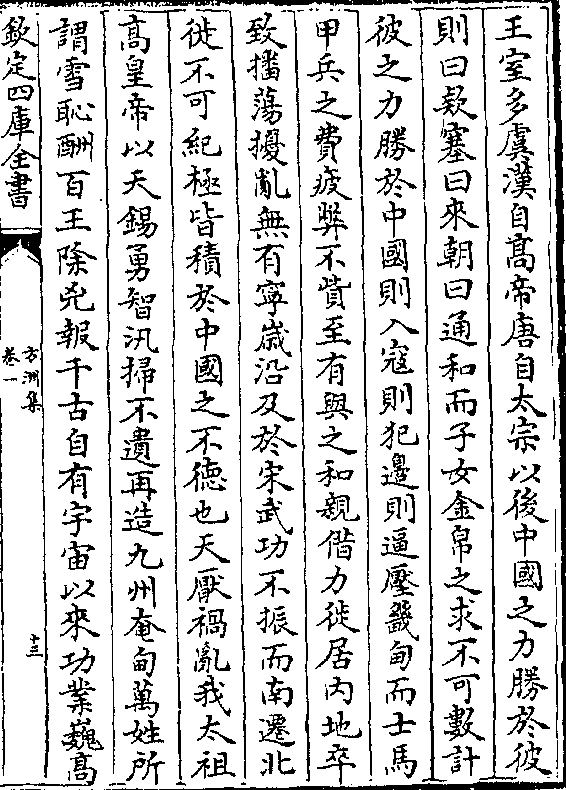 王室多虞漢自髙帝唐自太宗以後中國之力勝於彼
則曰欵塞曰來朝曰通和而子女金帛之求不可數計
彼之力勝於中國則入寇則犯邊則逼壓畿甸而士馬
甲兵之費疲弊不貲至有與之和親借力徙居内地卒
致播蕩擾亂無有寧嵗沿及於宋武功不振而南遷北
徙不可紀極皆積於中國之不德也天厭禍亂我太祖
髙皇帝以天錫勇智汛掃不遺再造九州奄甸萬姓所
謂雪恥酬百王除兇報千古自有宇宙以來功業巍髙
欽定四庫全書
方洲集
卷一
十三